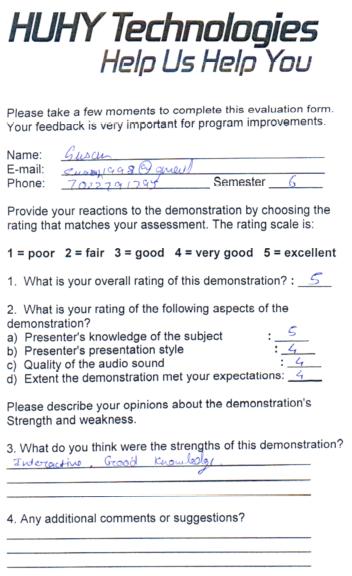 HUHY Technologies
Help Us Help You
Please take a few moments to complete this evaluation form.
Your feedback is very important for program improvements.
Name: Susan
E-mail:
Phone: Semester 6
Provide your reactions to the demonstration by choosing the
rating that matches your assessment. The rating scale is:
1 = poor 2 = fair 3 = good 4 = very good 5 = excellent
1. What is your overall rating of this demonstration? : 5
2. What is your rating of the following aspects of the
demonstration?
a) Presenter's knowledge of the subject : 5
b) Presenter's presentation style : 4
c) Quality of the audio sound : 4
d) Extent the demonstration met your expectations: 4
Please describe your opinions about the demonstration's
Strength and weakness.
3. What do you think were the strengths of this demonstration?
Interactive, Good Knowledge.
4. Any additional comments or suggestions?